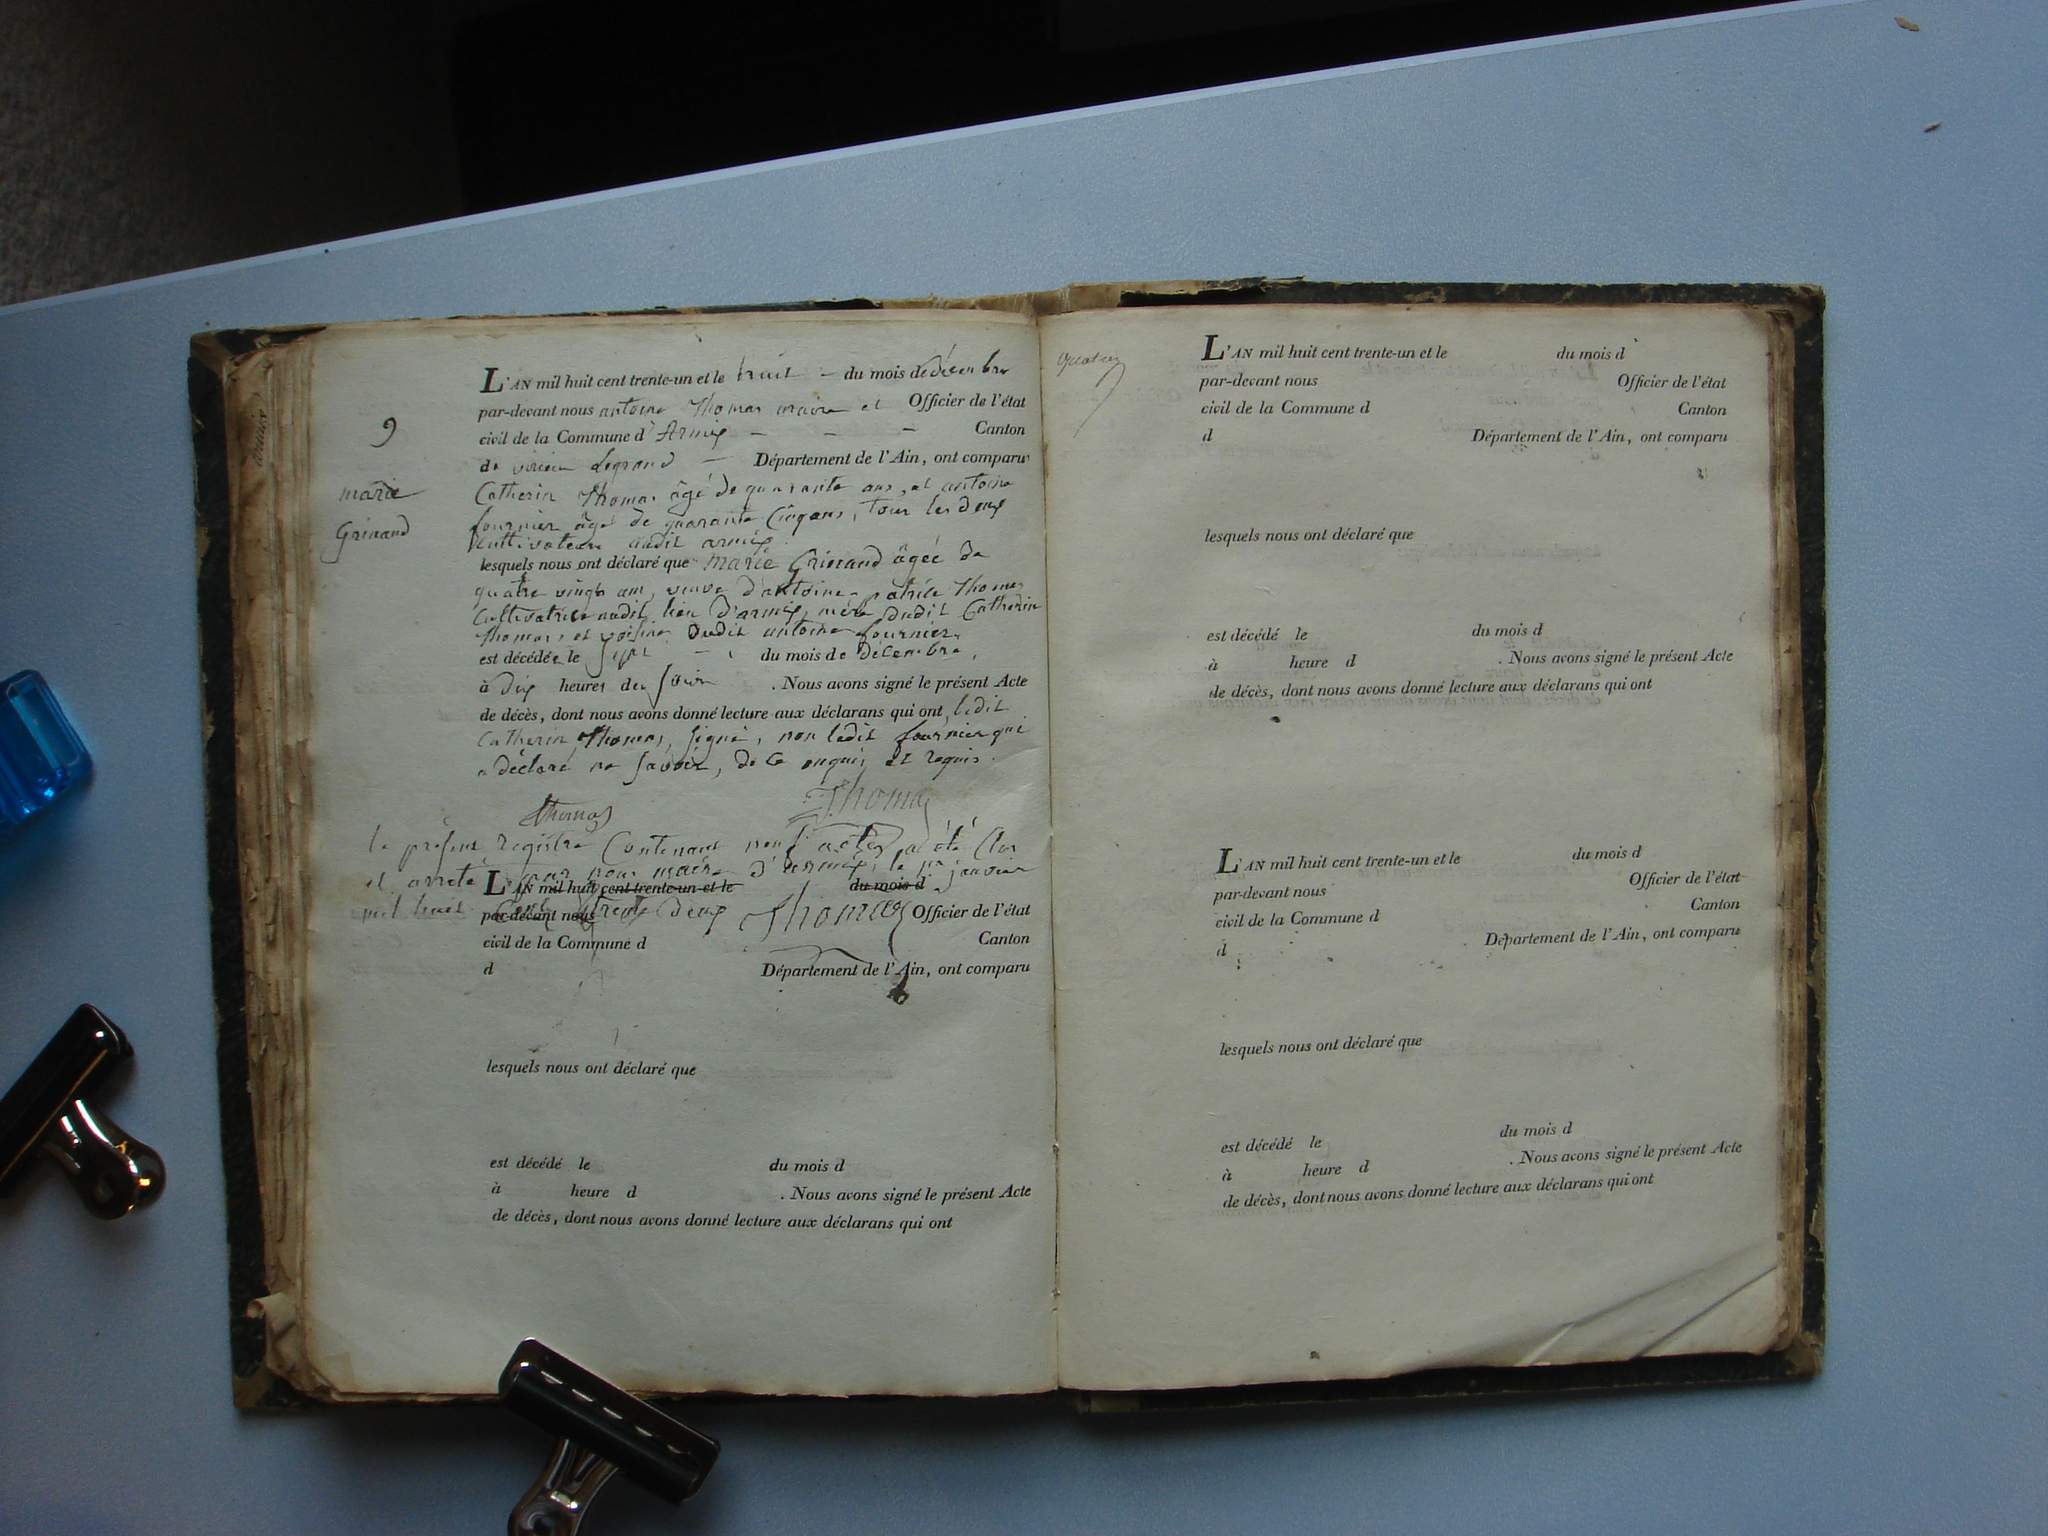 9
marie
Grinand
L'AN mil huit cent trente-un et le huit - du mois de décembre
par-devant nous antoine Thomas maire et Officier de l'état
civil de la Commune d'Armix - - - Canton
de virieu Legrand - Département de l'Ain, ont comparu
Catherin Thomas âgé de quarante ans, et antoine
fournier âgé de quarante Cinq ans, tous les deux
Cultivateurs audit armix
lesquels nous ont déclaré que marie Grinand âgée de
quatre vingts ans, veuve d'antoine patrice Thomas
Cultivatrice audit lieu d'armix, mère dudit Catherin
Thomas, et voisine dudit antoine fournier,
est décédée le Sept - du mois de Décembre,
à dix heures du Soir . Nous avons signé le présent Acte
de décès, dont nous avons donné lecture aux déclarans qui ont, ledit
Catherin Thomas, Signé, non ledit fournier qui
a déclaré ne Savoir, de Ce enquis et requis.
Thomas Thomas
le présent registre Contenant neuf actes a été Clos
et arreté par nous maire d'armix, le 1er janvier
L'AN mil huit cent trente-un et le du mois d
mil huit Cent trente deux Thomas
par-devant nous Officier de l'état
civil de la Commune d Canton
d Département de l'Ain, ont comparu
lesquels nous ont déclaré que
est décédé le du mois d
à heure d . Nous avons signé le présent Acte
de décès, dont nous avons donné lecture aux déclarans qui ont
L'AN mil huit cent trente-un et le du mois d
par-devant nous Officier de l'état
civil de la Commune d Canton
d Département de l'Ain, ont comparu
lesquels nous ont déclaré que
est décédé le du mois d
à heure d . Nous avons signé le présent Acte
de décès, dont nous avons donné lecture aux déclarans qui ont
L'AN mil huit cent trente-un et le du mois d
par-devant nous Officier de l'état
civil de la Commune d Canton
d Département de l'Ain, ont comparu
lesquels nous ont déclaré que
est décédé le du mois d
à heure d . Nous avons signé le présent Acte
de décès, dont nous avons donné lecture aux déclarans qui ont